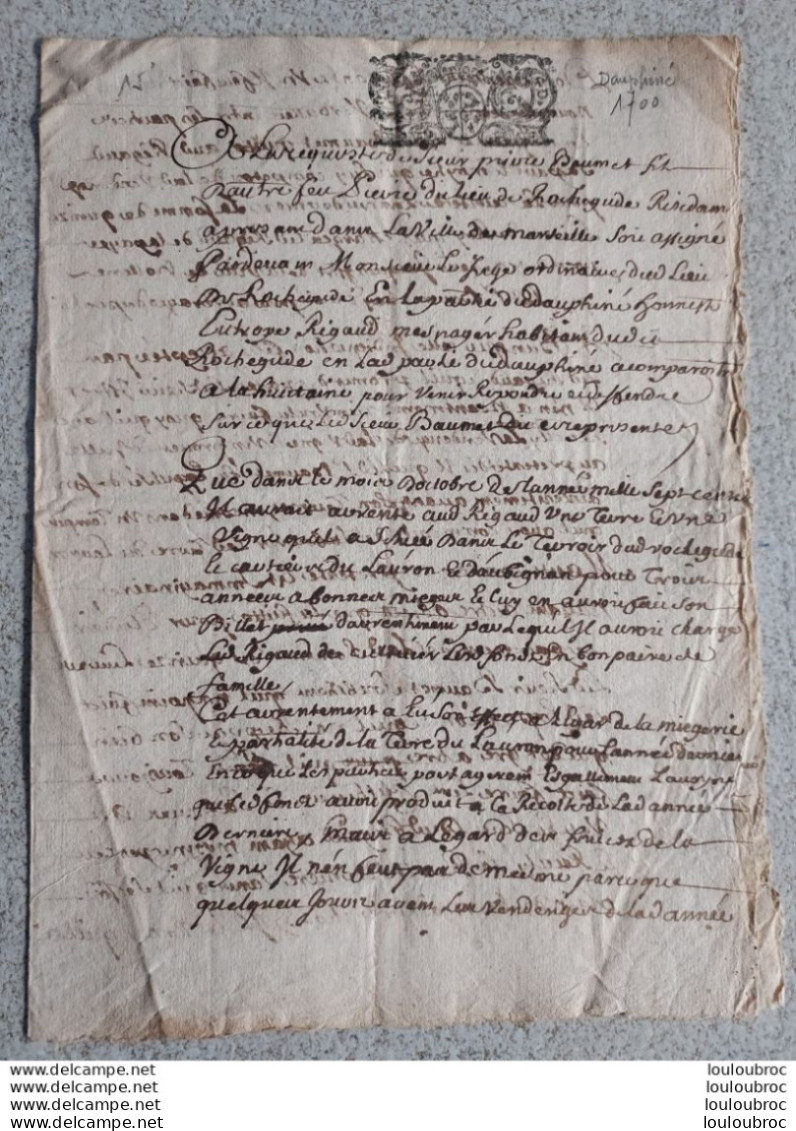 12
Dauphiné
1700
A La Requiste de Sieur pierre Beaumet fil
Dautre feu Pierre du Lieu de Rochegude Residam
a presam dans La Ville de Marseille Soit assigné
Pardevam Monsieur Le Juge ordinaire dud Lieu
De Rochegude En La partie du dauphiné honneste
Eutrope Rigaud mesnager habitam dudit
Rochegude en Lad partie du dauphiné a comparoitre
a la huictaine pour venir Repondre et deffendre
Sur ce que Led Sieur Baumet dit et represente
Que dans le mois Doctobre De Lannée mille Sept Cents
Il auroit arrenté aud Rigaud Vne Terre et Vne
Vigne quil a Dans Le Terroir dud rochegude
le cartier du Lauron et daubignan pour Trois
années a bonnes miegerie et Luy en auroit fait son
Billet darrentement par Lequel Il auroit chargé
Led Rigaud de Lesd fonds En bon paire de
famille
Cet arrentement a Eu Son Effect a Legard de la miegerie
Et partalité de la Terre du Lauron pour Lannée derniere
En ce que Les parties partagerent Esgallement
que led fonds avoit produit a la Recolte de Lad année
Derniere, mais a Legard des fruits de la
Vigne Il nen feut pas de mesme parce que
quelques Jours avant Les Vendenges de lad année
www.delcampe.net
www.delcampe.net
www.delcampe.net
www.delcampe.net
louloubroc
louloubroc
louloubroc
louloubroc